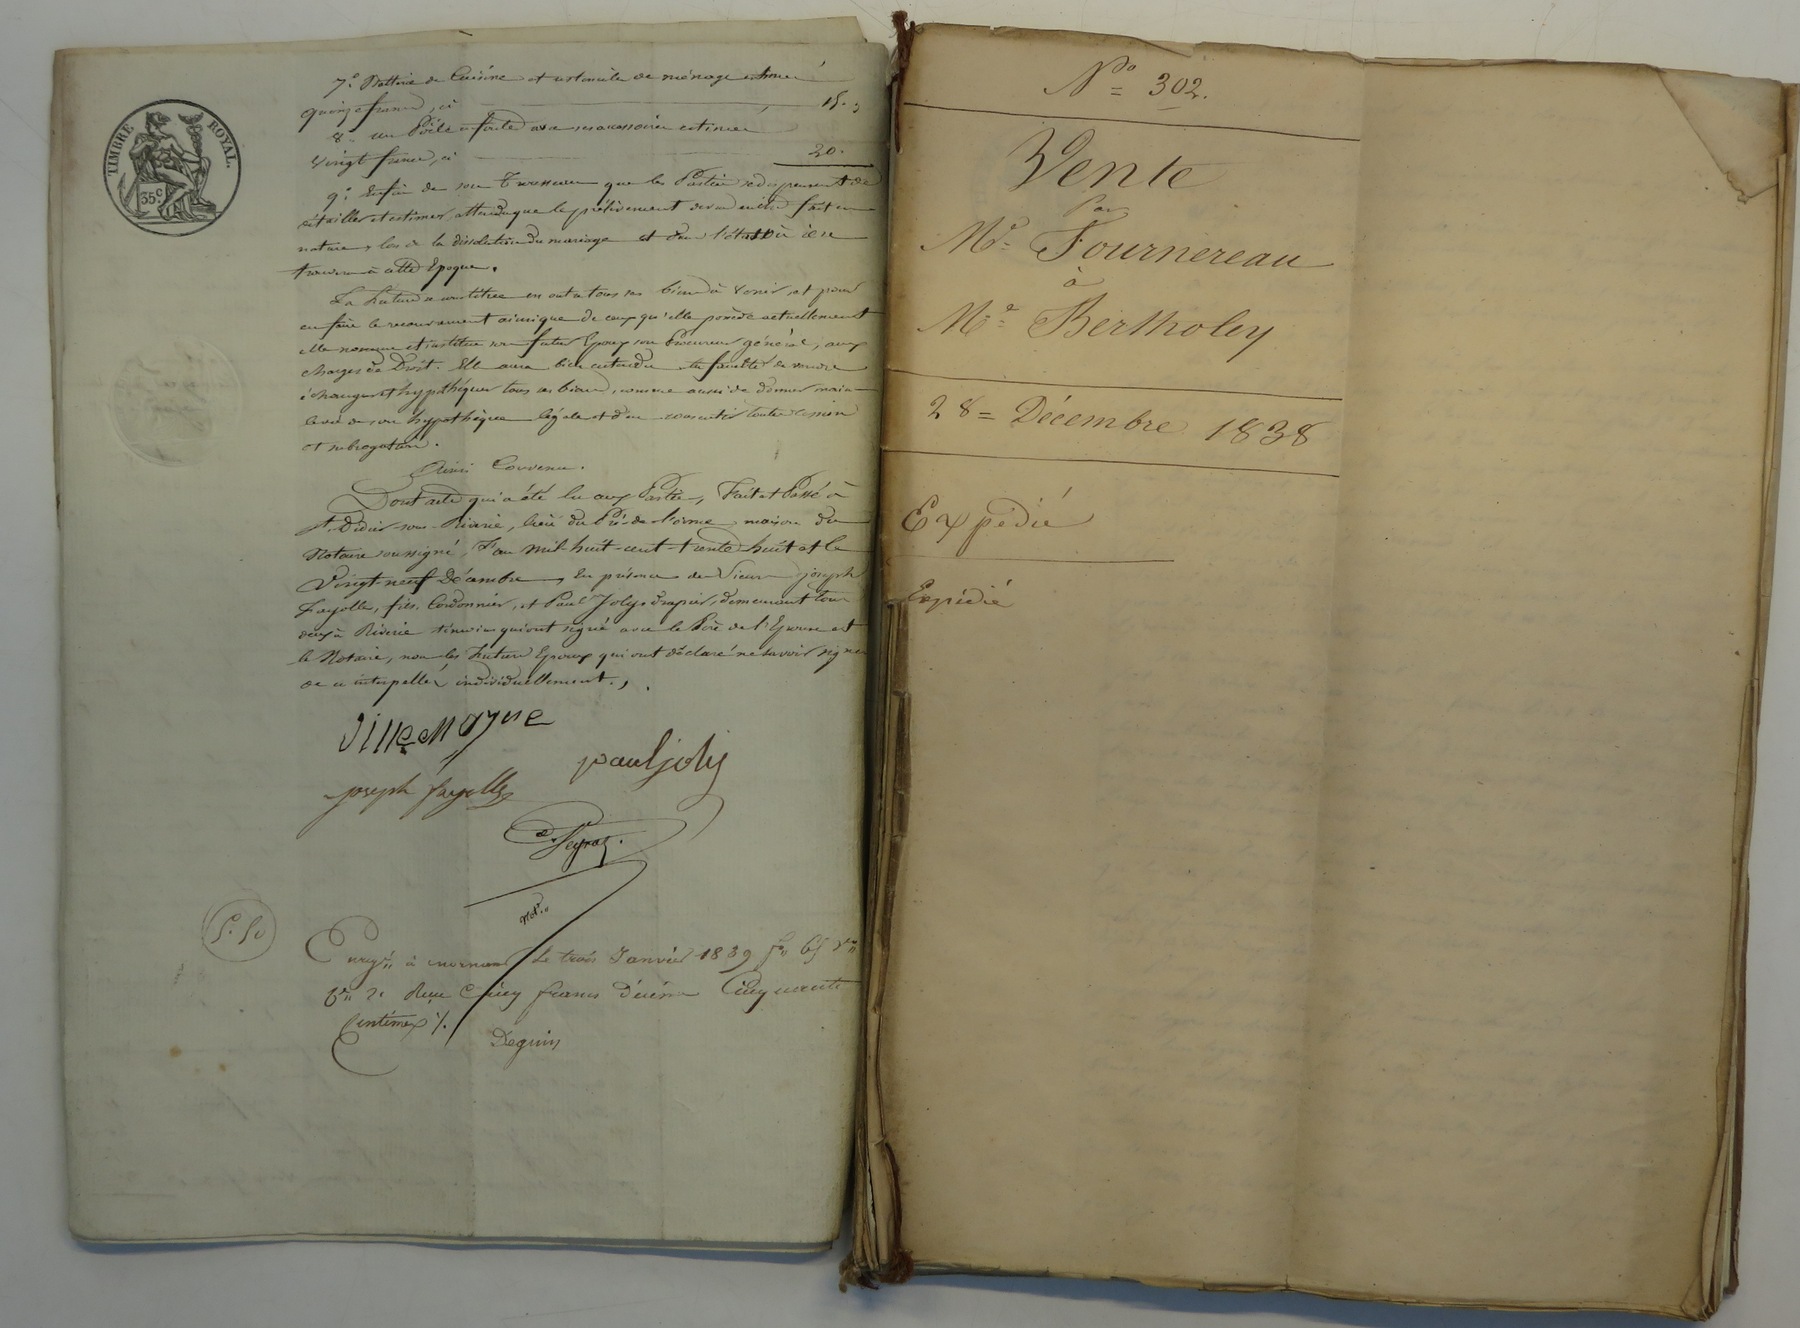 TIMBRE ROYAL.
35.c
7.° Batterie de Cuisine et ustensiles de ménage estimés
quinze francs, ci 15.
8° un Poële en fonte avec ses accessoires estimés
vingt francs, ci 20.
9.° Enfin de son Trousseau que les Parties se dispensent de
détailler et estimer, attendu que le prélèvement devra en être fait en
nature, lors de la dissolution du mariage et dans l'état où il se
trouvera à cette Epoque.
La future constitue en outre tous ses biens à venir, et pour
en faire le recouvrement ainsi que de ceux qu'elle possède actuellement
elle nomme et institue son futur Epoux son Procureur général, aux
charges de Droit. Elle aura bien entendu la faculté de vendre
échanger et hypothéquer tous ses biens, comme aussi de donner main
levée de son hypothèque légale et d'en consentir toute cession
et subrogation.
Ainsi Convenu.
Dont acte qui a été lu aux Parties, Fait et Passé à
St Didier-sous-Riverie, lieu du Pré-de-l'orme maison du
Notaire soussigné, l'an mil-huit-cent-trente huit et le
Vingt neuf Décembre, En présence de Sieurs joseph
Fayolle, fils, Cordonnier, et Paul Joly drapier, demeurant tous
deux à Riverie témoins qui ont signé avec le Père de l'Epouse et
le Notaire, non les Futurs Epoux qui ont déclaré ne savoir signer
de ce interpellés individuellement.
Villemagne
pauljoly
joseph fayolle
Peyrat.
Not.re
5.50
Enreg.té à mornant le trois Janvier 1839 f.o 65 v.o
c.e 2. Reçu Cinq francs Décime Cinquante
Centimes %.
Deguin
N.° = 302.
Vente
Par
M.r Fournereau
à
M.r Bertholey
28 = Décembre 1838
Expédié
Expédié